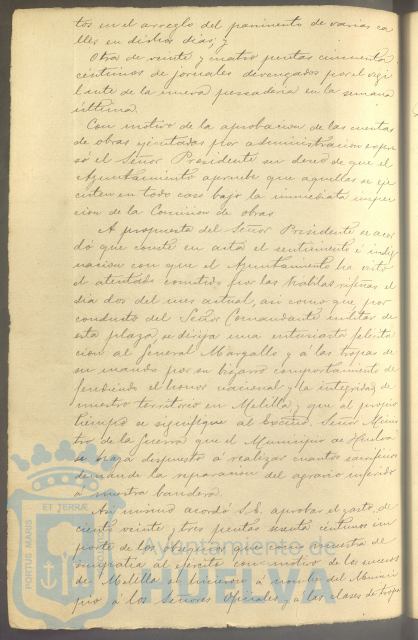 tos en el arreglo del pavimento de varias ca
lles en dichos dias; y
Otra de veinte y cuatro pesetas cincuenta
céntimos de jornales devengados por el vigi
lante de la nueva pescaderia en la semana
última.
Con motivo de la aprobacion de las cuentas
de obras ejecutadas por administracion expre
só el Señor Presidente su deseo de que el
Ayuntamiento apruebe que aquellas se eje
cuten en todo caso bajo la inmediata inspec
cion de la Comision de obras
A propuesta del Señor Presidente se acor
dó que conste en acta el sentimiento é indig
nacion con que el Ayuntamiento ha visto
el atentado cometido por las Kabilas rifeñas el
dia dos del mes actual, asi como que por
conducto del Señor Comandante militar de
esta plaza, se dirija una entusiasta felicita
cion al General Margallo y á las tropas de
su mando por su bizarro comportamiento de
fendiendo el honor nacional y la integridad de
nuestro territorio en Melilla, y que al propio
tiempo se signifique al Excmo. Señor Minis
tro de la Guerra que el Municipio de Huelva
se haya dispuesto á realizar cuantos sacrificios
demande la reparacion del agravio inferido
á nuestra bandera.
Asi mismo acordó S.E. aprobar el gasto de
ciento veinte y tres pesetas sesenta céntimos im
porte de los obsequios que como muestra de
simpatia al ejército con motivo de los sucesos
de Melilla se hicieron á nombre del Munici
pio á los Señores Oficiales y á las clases de tropa
PORTUS MARIS
ET TERRAE
Ayuntamiento de
HUELVA